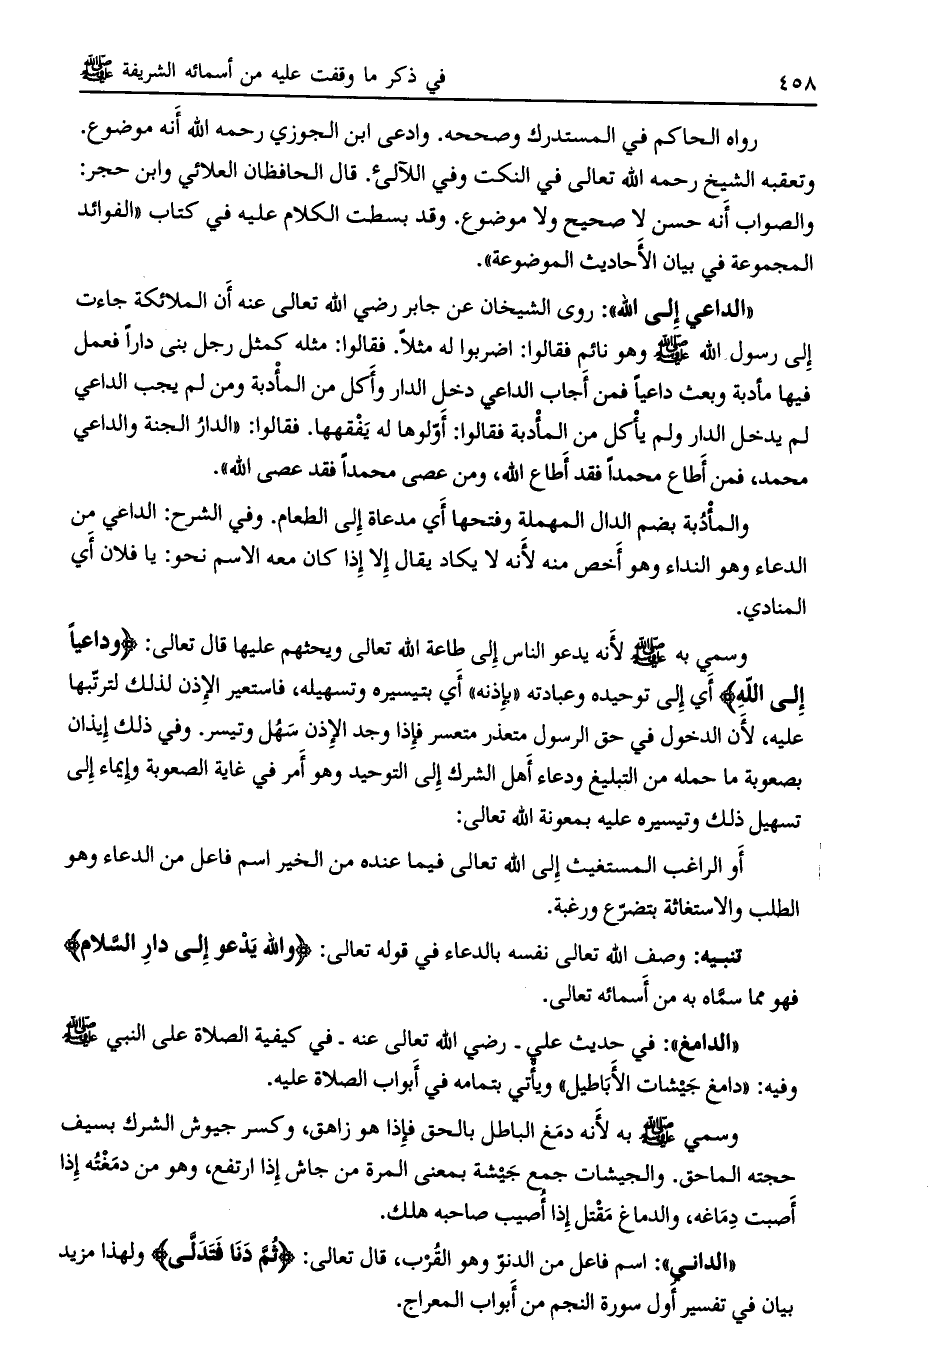 ٤٥٨ في ذكر ما وقفت عليه من أسمائه الشريفة ﷺ
رواه الحاكم في المستدرك وصححه. وادعى ابن الجوزي رحمه الله أنه موضوع.
وتعقبه الشيخ رحمه الله تعالى في النكت وفي اللآلئ. قال الحافظان العلائي وابن حجر:
والصواب أنه حسن لا صحيح ولا موضوع. وقد بسطت الكلام عليه في كتاب «الفوائد
المجموعة في بيان الأحاديث الموضوعة».
«الداعي إلى الله»: روى الشيخان عن جابر رضي الله تعالى عنه أن الملائكة جاءت
إلى رسول الله ﷺ وهو نائم فقالوا: اضربوا له مثلاً. فقالوا: مثله كمثل رجل بنى داراً فعمل
فيها مأدبة وبعث داعياً فمن أجاب الداعي دخل الدار وأكل من المأدبة ومن لم يجب الداعي
لم يدخل الدار ولم يأكل من المأدبة فقالوا: أوّلوها له يَفْقهها. فقالوا: «الدارُ الجنة والداعي
محمد، فمن أطاع محمداً فقد أطاع الله، ومن عصى محمداً فقد عصى الله».
والمأْدُبة بضم الدال المهملة وفتحها أي مدعاة إلى الطعام. وفي الشرح: الداعي من
الدعاء وهو النداء وهو أخص منه لأنه لا يكاد يقال إلا إذا كان معه الاسم نحو: يا فلان أي
المنادي.
وسمي به ﷺ لأنه يدعو الناس إلى طاعة الله تعالى ويحثهم عليها قال تعالى: ﴿وداعياً
إلى اللّهِ﴾ أي إلى توحيده وعبادته «بإذنه» أي بتيسيره وتسهيله، فاستعير الإذن لذلك لترتّبها
عليه، لأن الدخول في حق الرسول متعذر متعسر فإذا وجد الإذن سَهُل وتيسر. وفي ذلك إيذان
بصعوبة ما حمله من التبليغ ودعاء أهل الشرك إلى التوحيد وهو أمر في غاية الصعوبة وإيماء إلى
تسهيل ذلك وتيسيره عليه بمعونة الله تعالى:
أو الراغب المستغيث إلى الله تعالى فيما عنده من الخير اسم فاعل من الدعاء وهو
الطلب والاستغاثة بتضرّع ورغبة.
تنبيه: وصف الله تعالى نفسه بالدعاء في قوله تعالى: ﴿والله يَدْعو إلى دارِ السَّلام﴾
فهو مما سمَّاه به من أسمائه تعالى.
«الدامغ»: في حديث علي ـ رضي الله تعالى عنه ـ في كيفية الصلاة على النبي ﷺ
وفيه: «دامغ جَيْشات الأَباطيل» ويأتي بتمامه في أبواب الصلاة عليه.
وسمي ﷺ به لأنه دمَغ الباطل بالحق فإذا هو زاهق، وكسر جيوش الشرك بسيف
حجته الماحق. والجيشات جمع جَيْشة بمعنى المرة من جاش إذا ارتفع، وهو من دمَغْتُه إذا
أصبت دِمَاغه، والدماغ مَقْتل إذا أُصيب صاحبه هلك.
«الداني»: اسم فاعل من الدنوّ وهو القُرْب، قال تعالى: ﴿ثُمَّ دَنَا فَتَدَلَّى﴾ ولهذا مزيد
بيان في تفسير أول سورة النجم من أبواب المعراج.